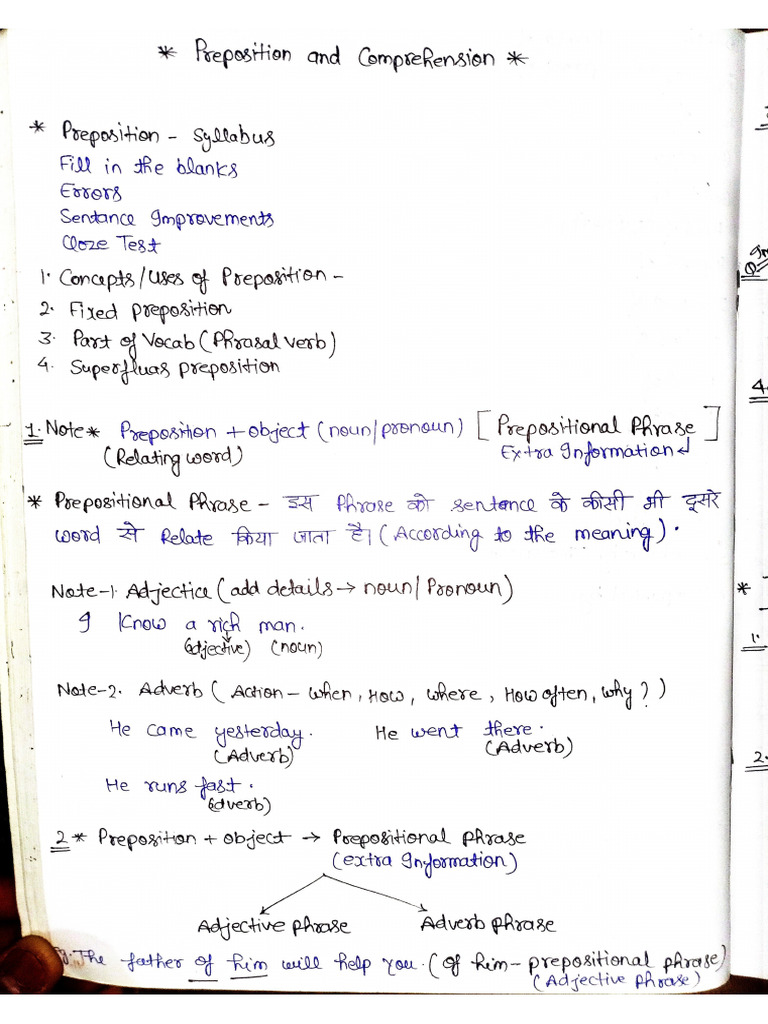 * Preposition and Comprehension *
* Preposition - Syllabus
Fill in the blanks
Errors
Sentance Improvements
Cloze Test
1. Concepts/Uses of Preposition -
2. Fixed preposition
3. Part of Vocab (Phrasal verb)
4. Superfluas preposition
1. Note* Preposition + object (noun/pronoun) [Prepositional Phrase]
(Relating word) Extra Information
* Prepositional Phrase - इस Phrase को sentence के कीसी भी दूसरे
word से Relate किया जाता है। (According to the meaning).
Note-1. Adjectice (add details → noun/Pronoun)
I Know a rich man.
(adjective) (noun)
Note-2. Adverb (Action - when, How, where, How often, why?)
He came yesterday. He went there.
(Adverb) (Adverb)
He runs fast.
(adverb)
2* Preposition + object → Prepositional phrase
(extra Information)
Adjective phrase Adverb phrase
The father of him will help you. (Of him - prepositional phrase)
(Adjective phrase)
* 
1.
2.
4.